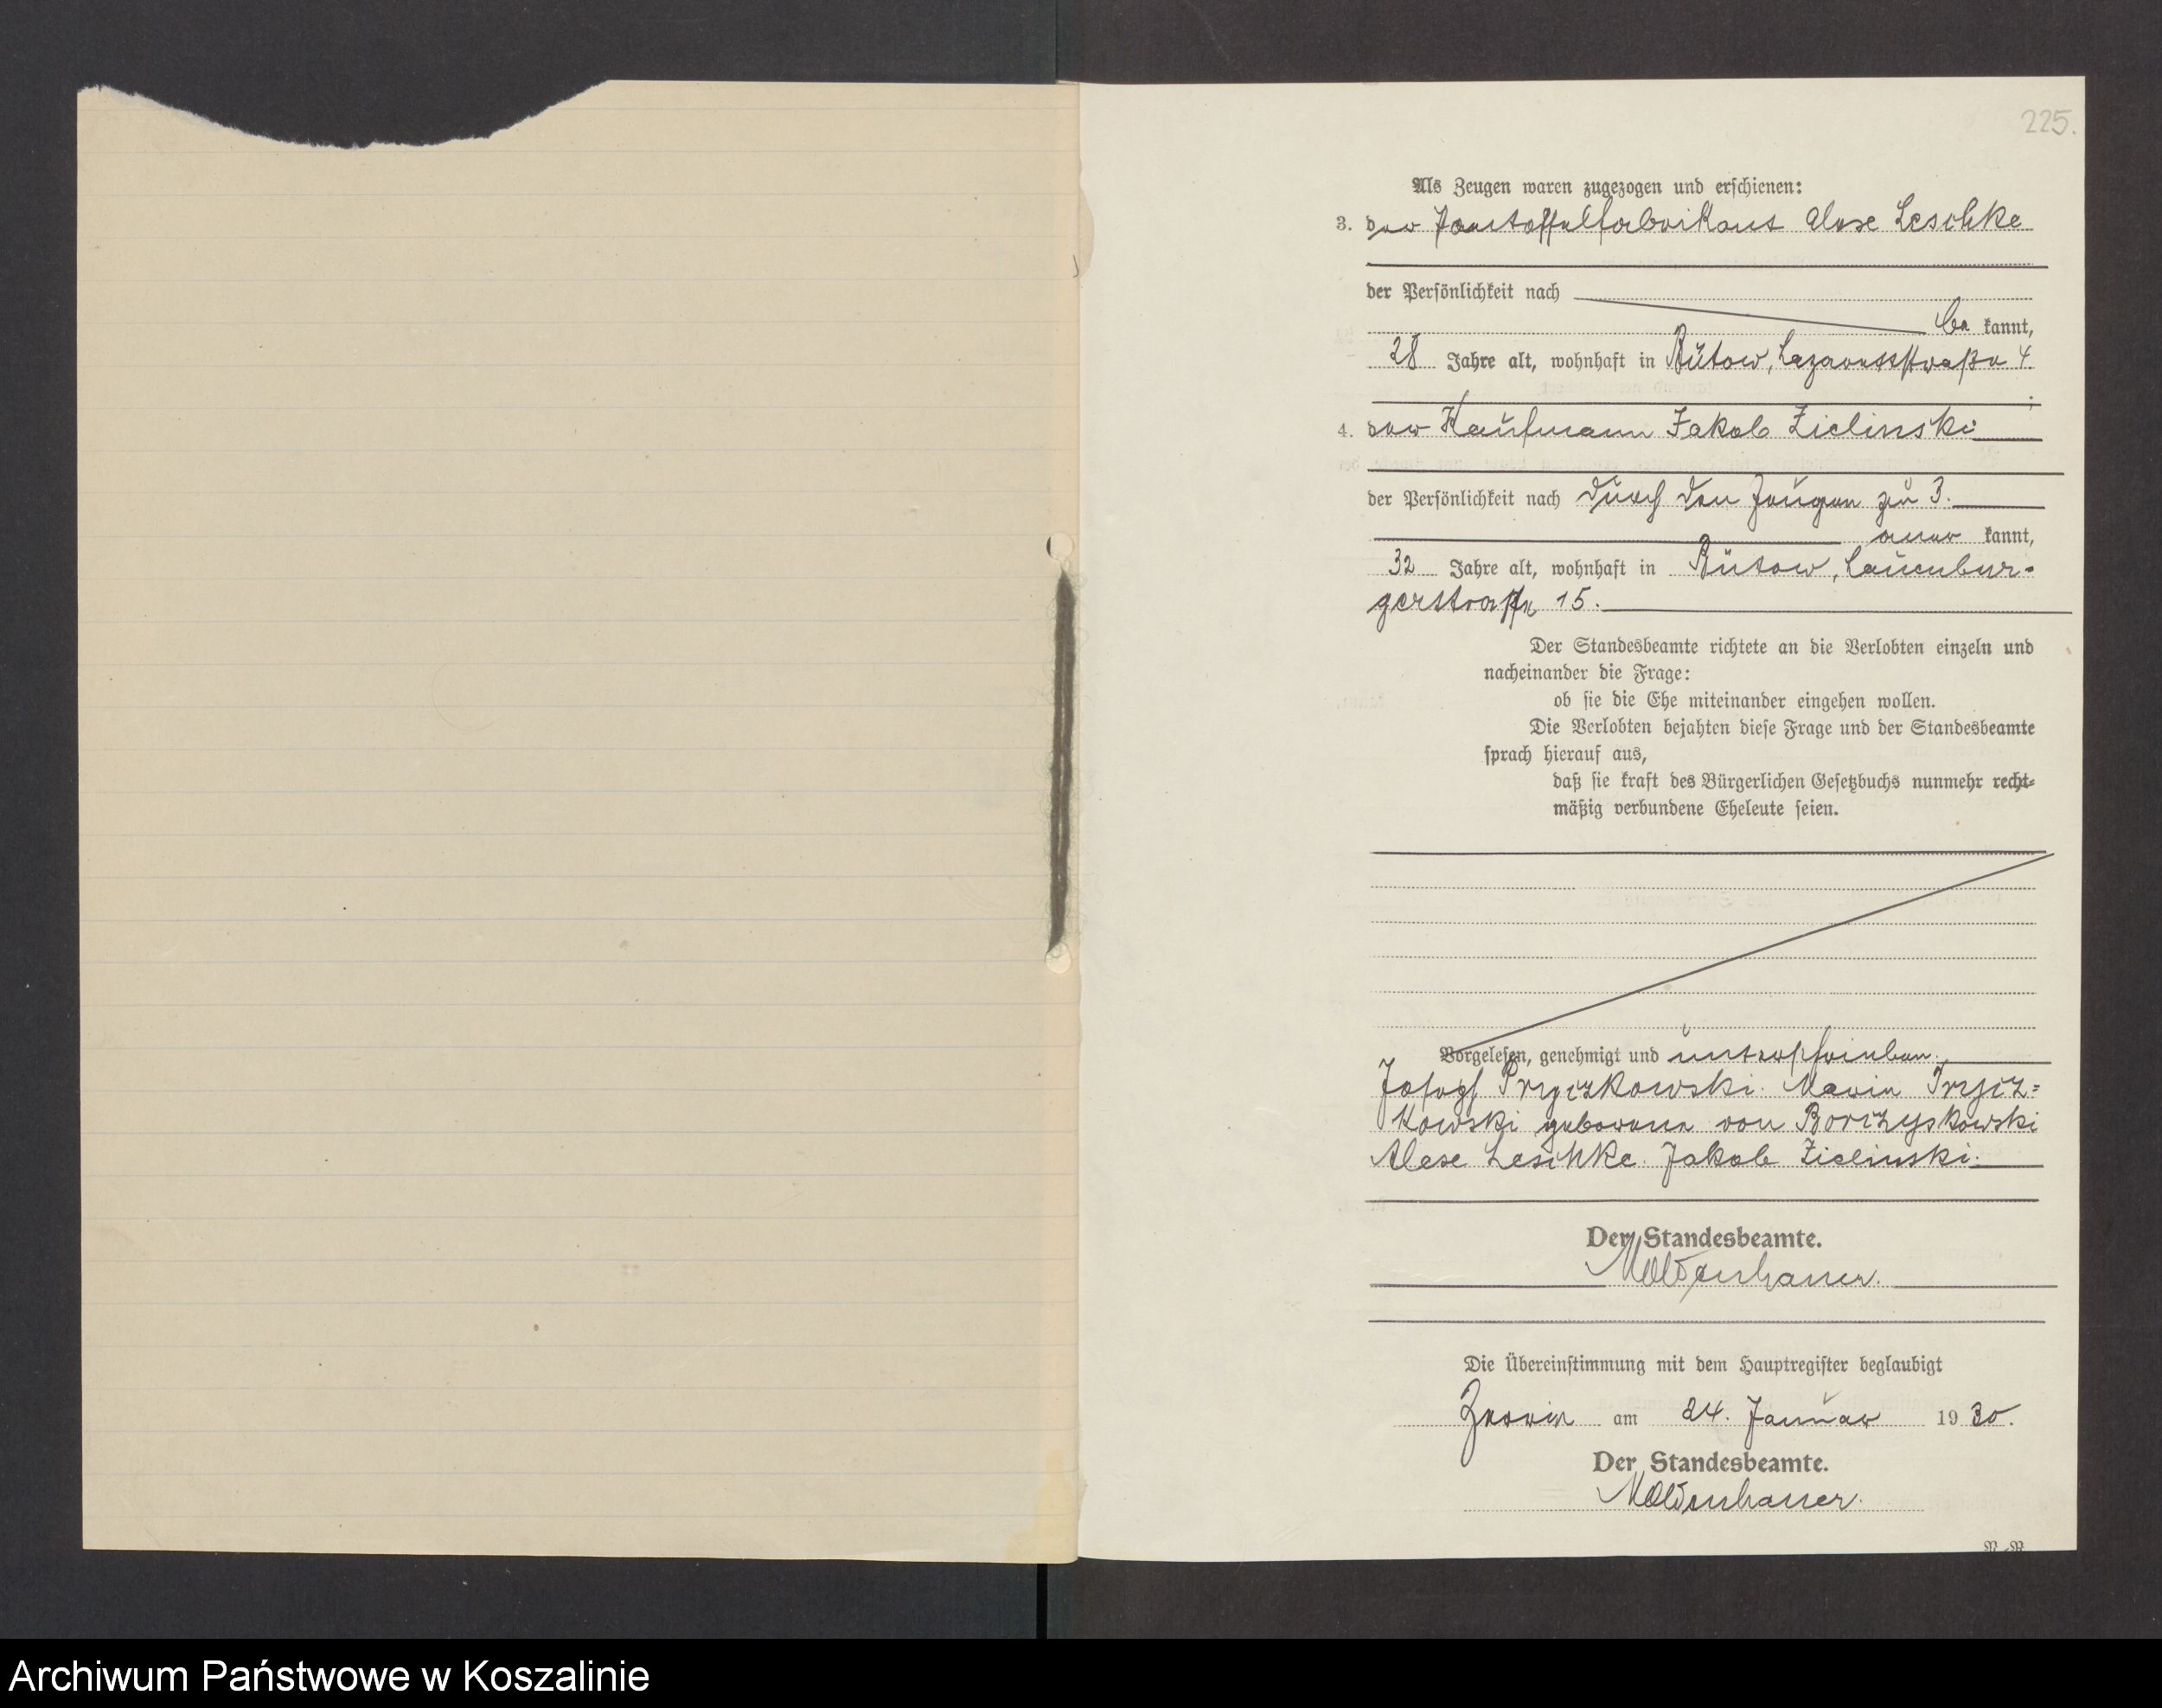 225.
Als Zeugen waren zugezogen und erschienen:
3. der Pantoffelfabrikant Alex Leschke
der Persönlichkeit nach
be kannt,
28 Jahre alt, wohnhaft in Bütow, Lazarettstraße 4
;
4. der Kaufmann Jakob Zielinski
der Persönlichkeit nach durch den Zeugen zu 3.
aner kannt,
32 Jahre alt, wohnhaft in Bütow, Lauenbur-
gerstraße 15.
Der Standesbeamte richtete an die Verlobten einzeln und
nacheinander die Frage:
ob sie die Ehe miteinander eingehen wollen.
Die Verlobten bejahten diese Frage und der Standesbeamte
sprach hierauf aus,
daß sie kraft des Bürgerlichen Gesetzbuchs nunmehr recht-
mäßig verbundene Eheleute seien.
Vorgelesen, genehmigt und unterschrieben.
Josef Marie
geborene von Borzyskowski
Leschke. Jakob Zielinski.
Der Standesbeamte.
Moldenhauer.
Die Übereinstimmung mit dem Hauptregister beglaubigt
am 24. Januar 1930.
Der Standesbeamte.
Moldenhauer.
Archiwum Państwowe w Koszalinie